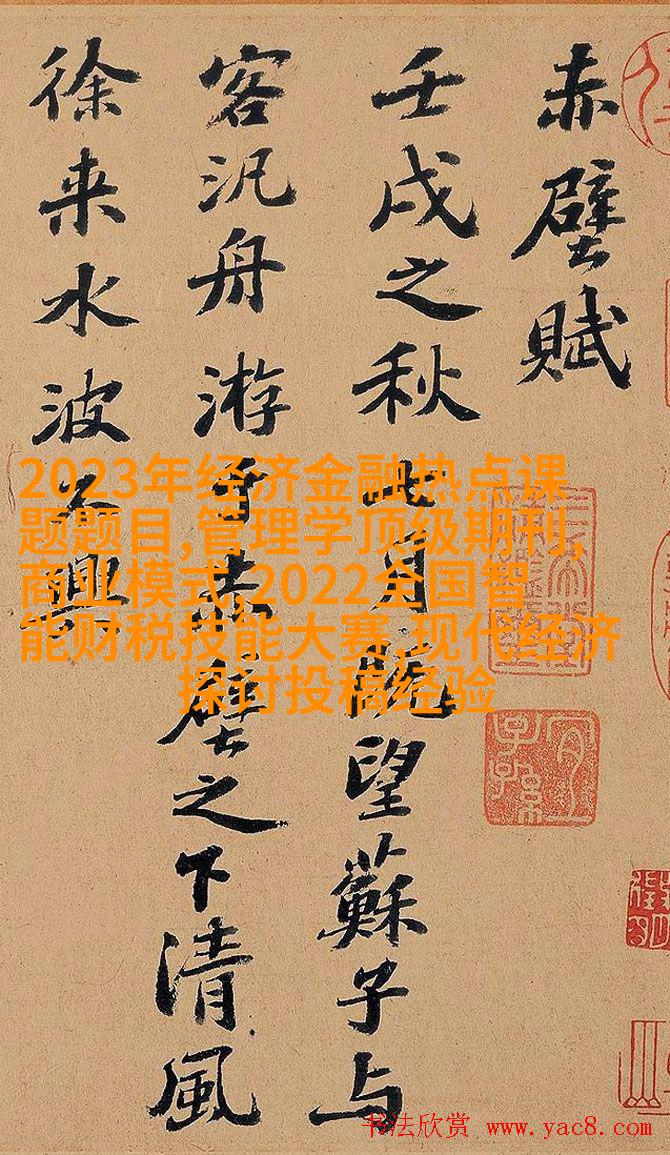 赤壁賦
壬戌之秋七月既望蘇子与
客汎舟游于赤壁之下清風
徐来水波不興
2023年经济金融热点课
题题目,管理学顶级期刊,
商业模式,2022全国智
能财税技能大赛,现代经济
探讨投稿经验
书法欣赏 www.yac8.com